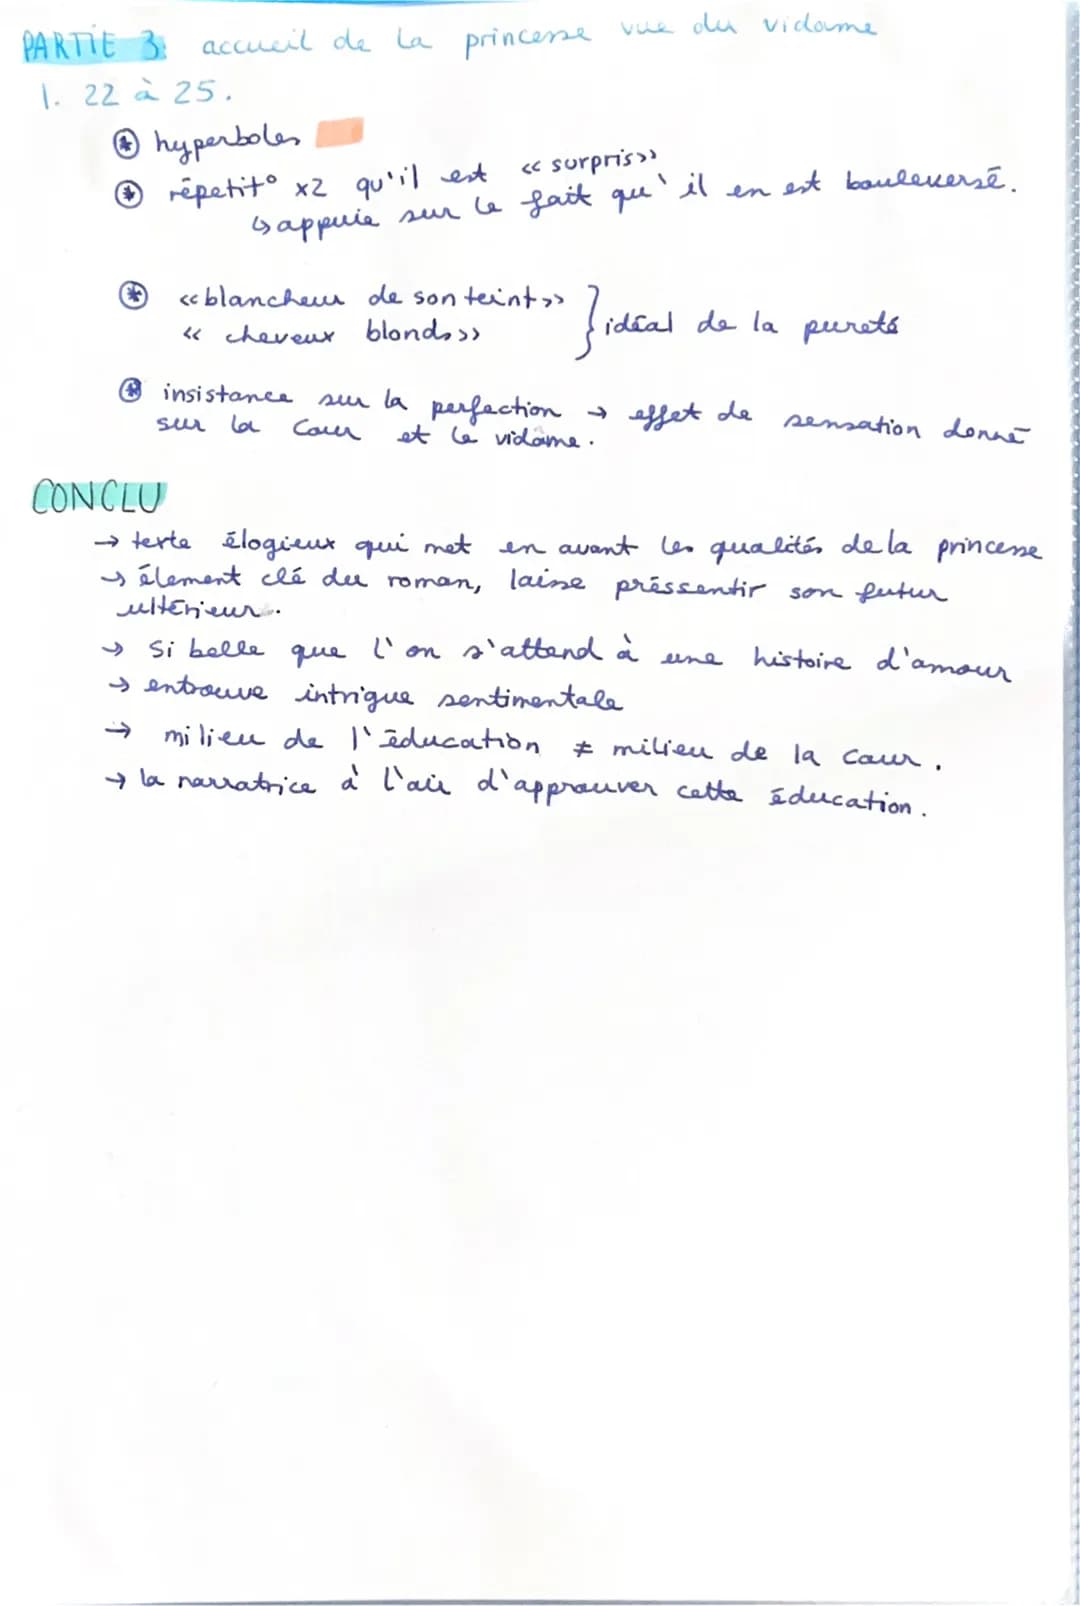 PARTIE 3: accueil de la princesse vue du vidame
l. 22 à 25.
* hyperboles
* répetit° x2 qu'il est « surpris »
↳ appuie sur le fait qu'il en est bouleversé.
* « blancheur de son teint »
« cheveux blonds » } idéal de la pureté
* insistance sur la perfection → effet de sensation donné
sur la cour et le vidame.
CONCLU
→ texte élogieux qui met en avant les qualités de la princesse
→ élement clé du roman, laisse préssentir son futur
ultérieur.
→ si belle que l'on s'attend à une histoire d'amour
→ entrouve intrigue sentimentale
→ milieu de l'éducation ≠ milieu de la cour.
→ la narratrice à l'air d'approuver cette éducation.